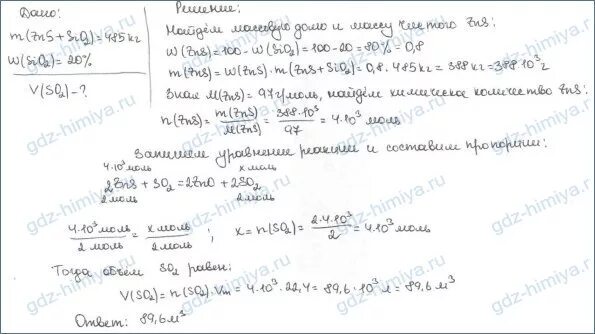 Дано:
m(ZnS + SiO₂) = 485 кг
W(SiO₂) = 20%
V(SO₂) - ?
Решение:
Найдём массовую долю и массу чистого ZnS:
W(ZnS) = 100 - W(SiO₂) = 100 - 20 = 80% = 0,8
m(ZnS) = W(ZnS) · m(ZnS + SiO₂) = 0,8 · 485 кг = 388 кг = 388·10³ г
Зная M(ZnS) = 97 г/моль, найдём химическое количество ZnS:
n(ZnS) = m(ZnS)/M(ZnS) = 388·10³/97 = 4·10³ моль
Запишем уравнение реакции и составим пропорции:
4·10³ моль x моль
2ZnS + 3O₂ = 2ZnO + 2SO₂
2 моль 2 моль
4·10³ моль/2 моль = x моль/2 моль ; x = n(SO₂) = 2·4·10³/2 = 4·10³ моль
Тогда объём SO₂ равен:
V(SO₂) = n(SO₂) · Vm = 4·10³ · 22,4 = 89,6 · 10³ л = 89,6 м³
Ответ: 89,6 м³
gdz-himiya.ru
gdz-himiya.ru
gdz-himiya.ru
gdz-himiya.ru
gdz-himiya.ru
gdz-himiya.ru
gdz-himiya.ru
gdz-himiya.ru